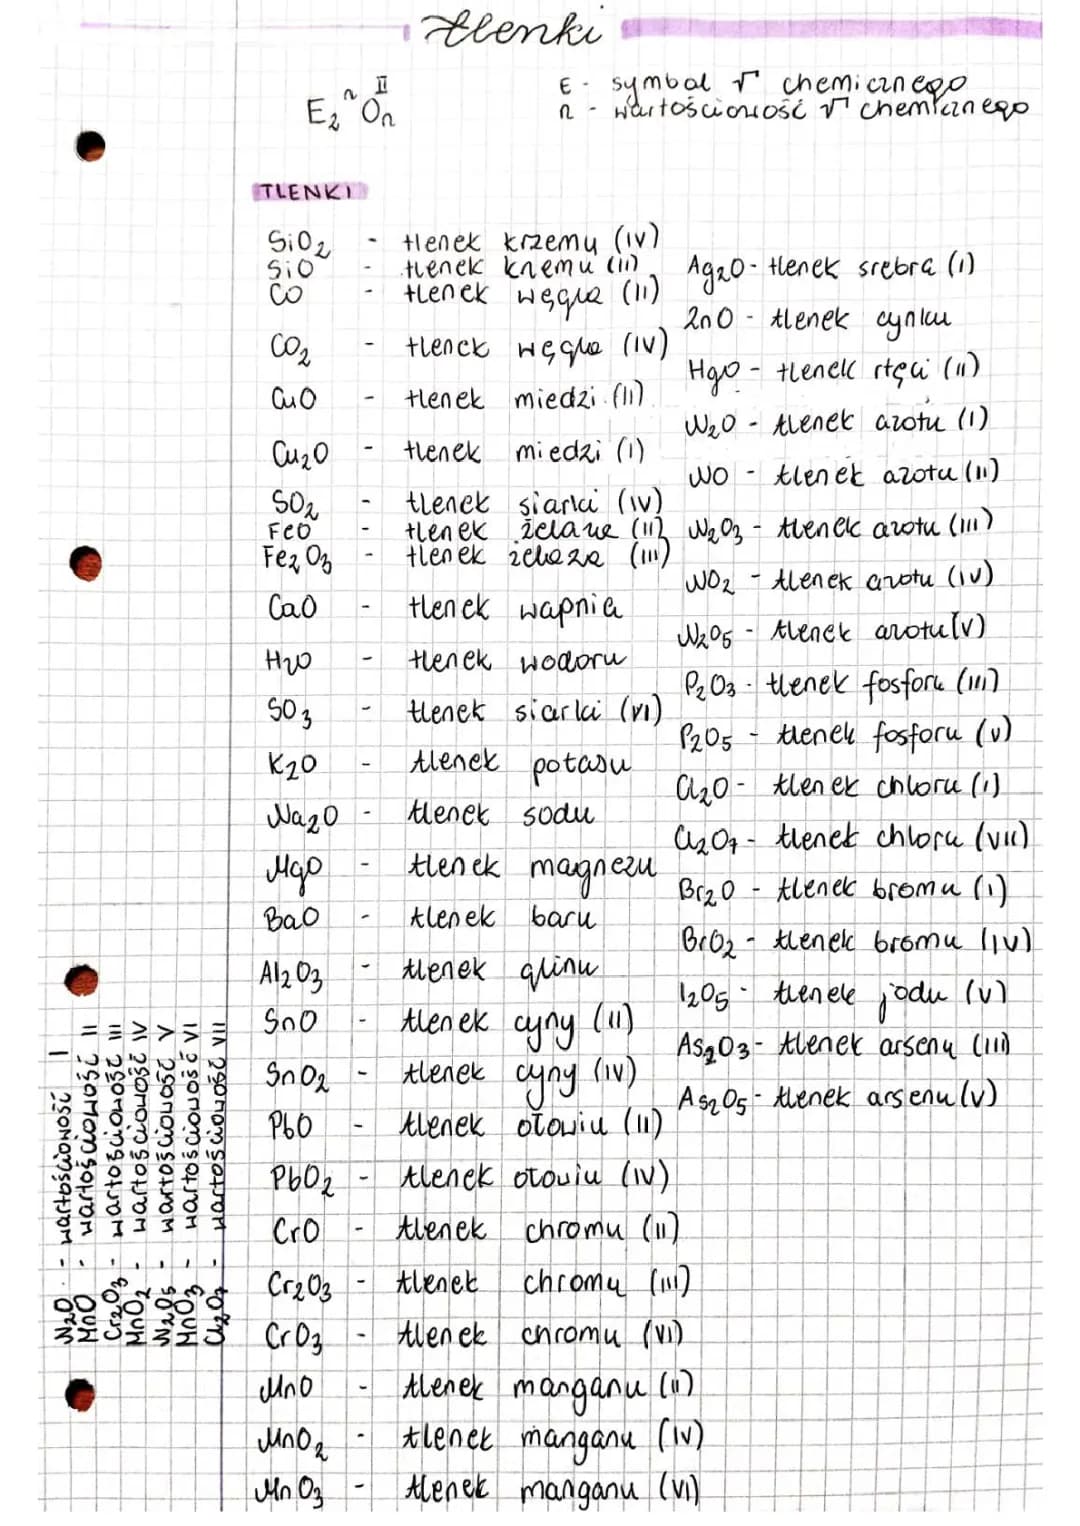 tlenki
E₂ⁿOₙᴵᴵ
E - symbol √ chemicznego
n - wartościowość √ chemicznego
TLENKI
SiO₂ - tlenek krzemu (IV)
SiO - tlenek krzemu (II)
CO - tlenek węgla (II)
CO₂ - tlenek węgla (IV)
CuO - tlenek miedzi (II)
Cu₂O - tlenek miedzi (I)
SO₂ - tlenek siarki (IV)
FeO - tlenek żelaza (II)
Fe₂O₃ - tlenek żelaza (III)
CaO - tlenek wapnia
H₂O - tlenek wodoru
SO₃ - tlenek siarki (VI)
K₂O - tlenek potasu
Na₂O - tlenek sodu
MgO - tlenek magnezu
BaO - tlenek baru
Al₂O₃ - tlenek glinu
SnO - tlenek cyny (II)
SnO₂ - tlenek cyny (IV)
PbO - tlenek ołowiu (II)
PbO₂ - tlenek ołowiu (IV)
CrO - tlenek chromu (II)
Cr₂O₃ - tlenek chromu (III)
CrO₃ - tlenek chromu (VI)
MnO - tlenek manganu (II)
MnO₂ - tlenek manganu (IV)
MnO₃ - tlenek manganu (VI)
Ag₂O - tlenek srebra (I)
ZnO - tlenek cynku
HgO - tlenek rtęci (II)
N₂O - tlenek azotu (I)
NO - tlenek azotu (II)
N₂O₃ - tlenek azotu (III)
NO₂ - tlenek azotu (IV)
N₂O₅ - tlenek azotu (V)
P₂O₃ - tlenek fosforu (III)
P₂O₅ - tlenek fosforu (V)
Cl₂O - tlenek chloru (I)
Cl₂O₇ - tlenek chloru (VII)
Br₂O - tlenek bromu (I)
BrO₂ - tlenek bromu (IV)
I₂O₅ - tlenek jodu (V)
As₂O₃ - tlenek arsenu (III)
As₂O₅ - tlenek arsenu (V)
N₂O - wartościowość I
MnO - wartościowość II
Cr₂O₃ - wartościowość III
MnO₂ - wartościowość IV
N₂O₅ - wartościowość V
MnO₃ - wartościowość VI
Cl₂O₇ - wartościowość VII